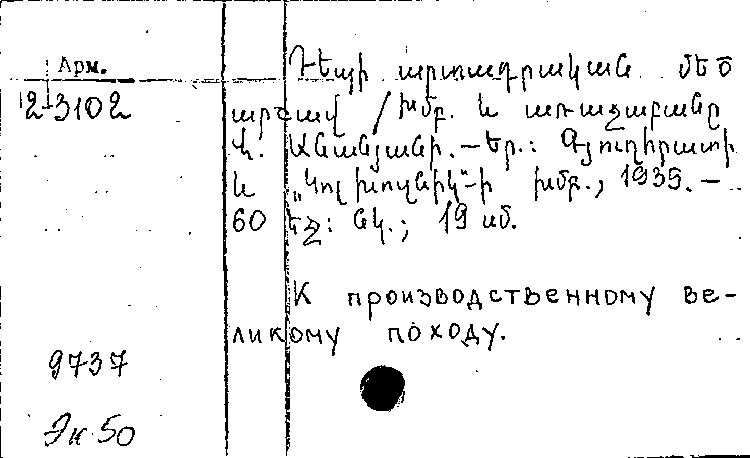 Арм.
12-3102
Դեպի արտադրական մեծ
արշավ / խմբ. և առաջաբանը
Անանյանի. — Եր.: Գյուղհրատի
և „Կոլխոզնիկ“-ի խմբ., 1935. —
60 եջ: նկ.; 19 սմ.
К производственному ве-
ликому походу.
9737
Эк 50